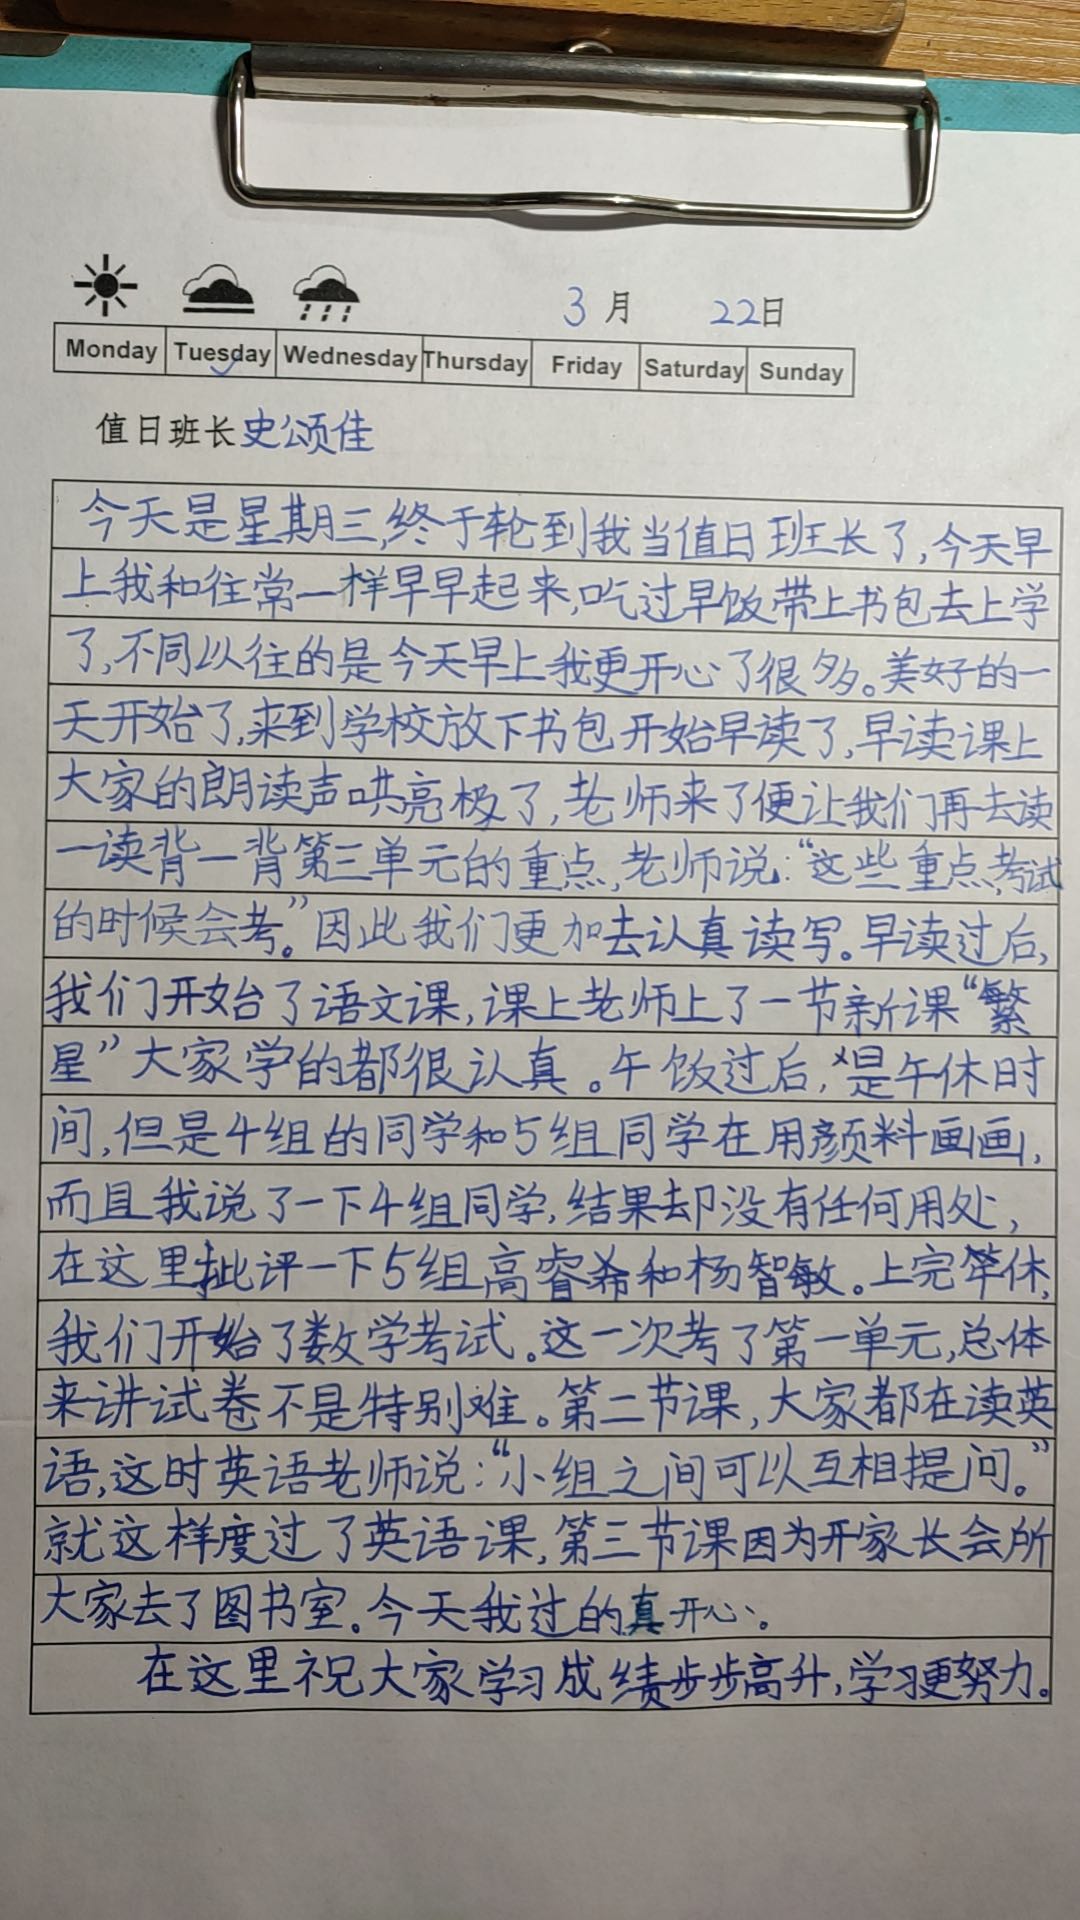 3月 22日
Monday Tuesday Wednesday Thursday Friday Saturday Sunday
值日班长史颂佳
今天是星期三,终于轮到我当值日班长了,今天早
上我和往常一样早早起来,吃过早饭带上书包去上学
了,不同以往的是今天早上我更开心了很多。美好的一
天开始了,来到学校放下书包开始早读了,早读课上
大家的朗读声哄亮极了,老师来了便让我们再去读
一读背一背第三单元的重点,老师说:“这些重点,考试
的时候会考。”因此我们更加去认真读写。早读过后,
我们开始了语文课,课上老师上了一节新课“繁
星”大家学的都很认真。午饭过后,是午休时
间,但是4组的同学和5组同学在用颜料画画,
而且我说了一下4组同学,结果却没有任何用处,
在这里批评一下5组高睿希和杨智敏。上完午休,
我们开始了数学考试。这一次考了第一单元,总体
来讲试卷不是特别难。第二节课,大家都在读英
语,这时英语老师说:“小组之间可以互相提问。”
就这样度过了英语课,第三节课因为开家长会所
大家去了图书室。今天我过的真开心。
在这里祝大家学习成绩步步高升,学习更努力。